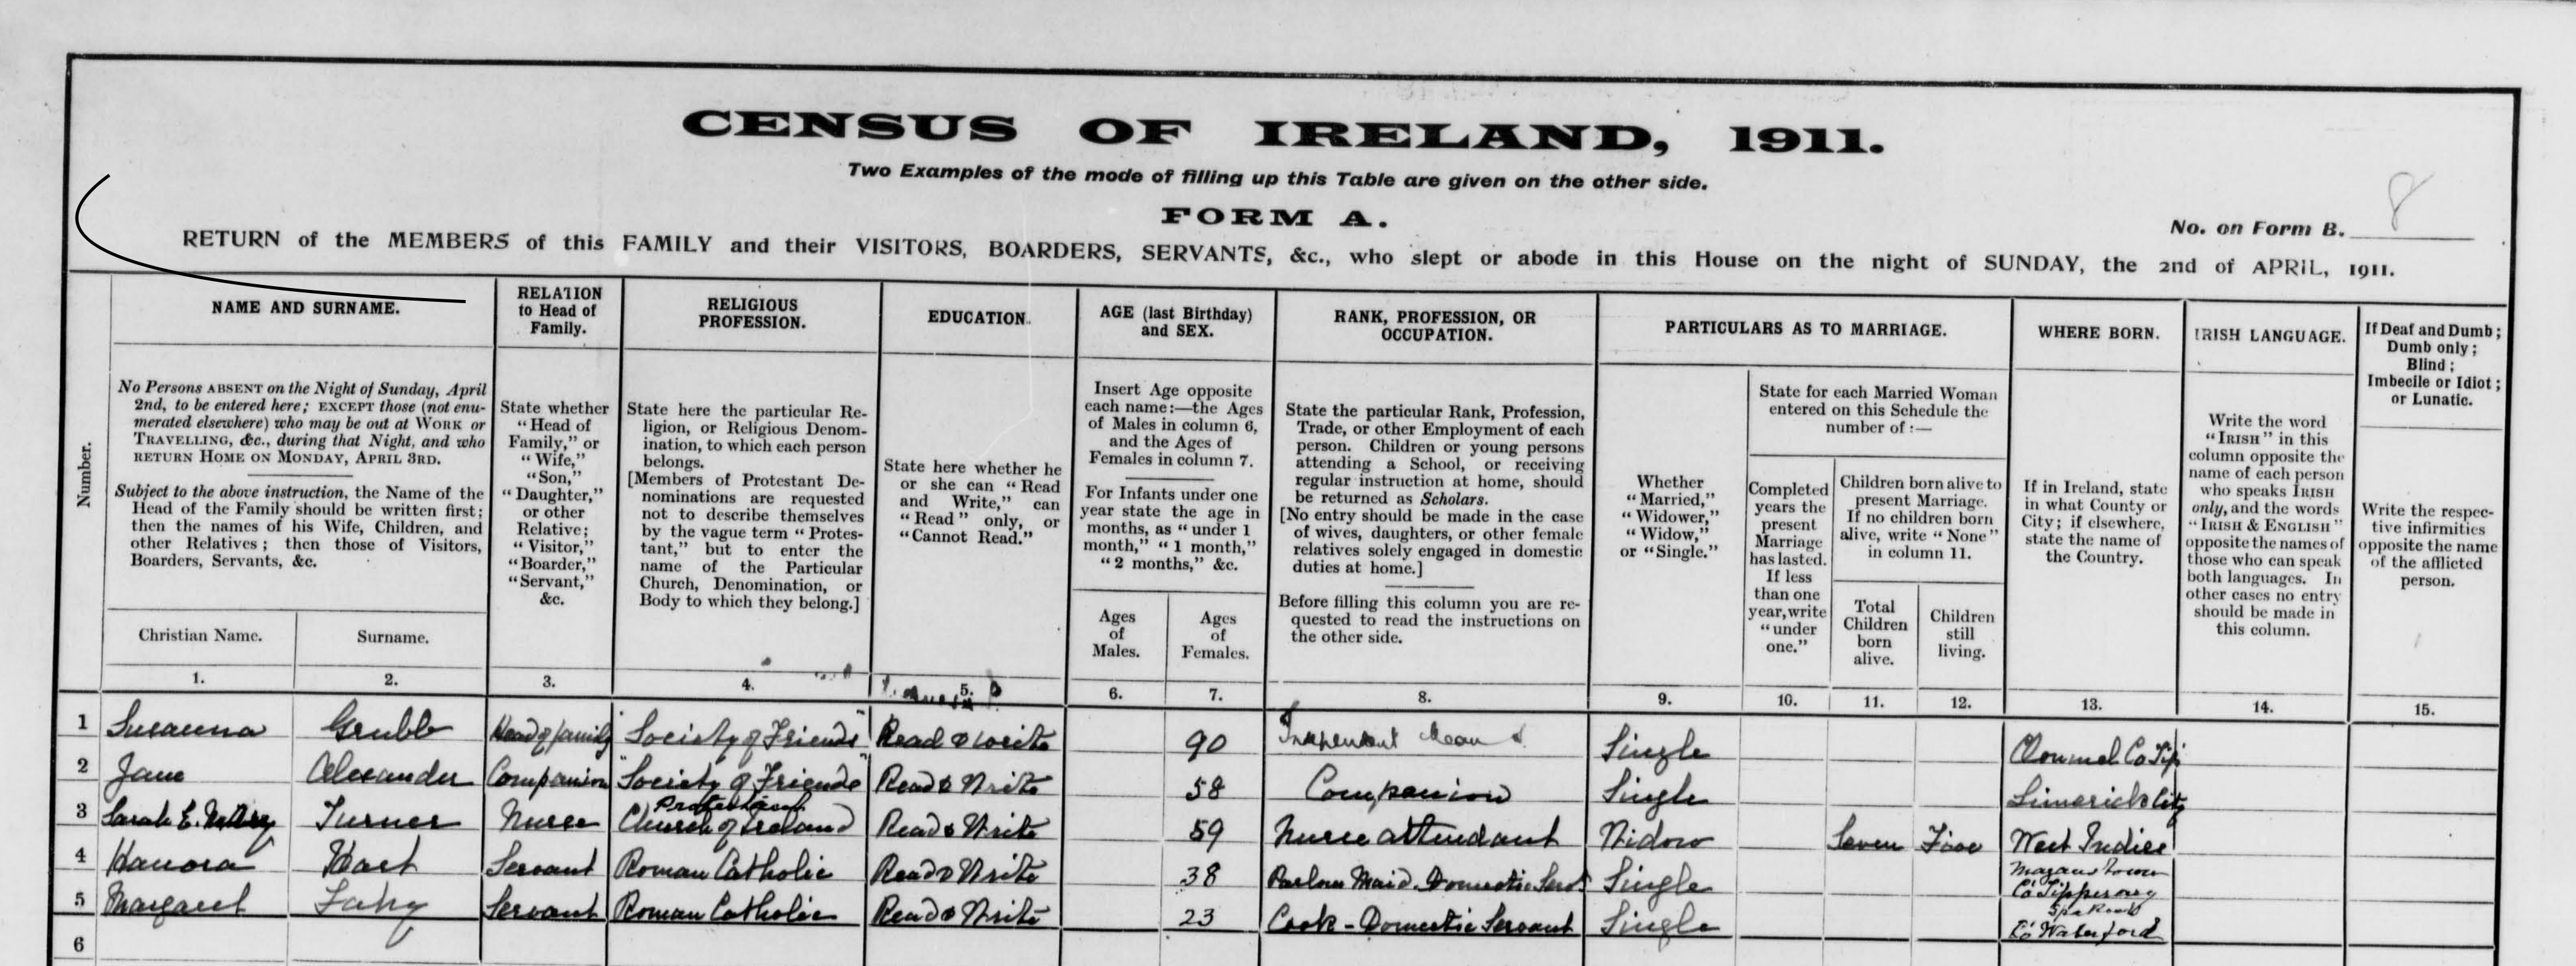 CENSUS OF IRELAND, 1911.
Two Examples of the mode of filling up this Table are given on the other side.
FORM A.
No. on Form B. 8
RETURN of the MEMBERS of this FAMILY and their VISITORS, BOARDERS, SERVANTS, &c., who slept or abode in this House on the night of SUNDAY, the 2nd of APRIL, 1911.
Number.
NAME AND SURNAME.
No Persons ABSENT on the Night of Sunday, April
2nd, to be entered here; EXCEPT those (not enu-
merated elsewhere) who may be out at WORK or
TRAVELLING, &c., during that Night, and who
RETURN HOME ON MONDAY, APRIL 3RD.
Subject to the above instruction, the Name of the
Head of the Family should be written first;
then the names of his Wife, Children, and
other Relatives; then those of Visitors,
Boarders, Servants, &c.
Christian Name.
Surname.
1.
2.
RELATION
to Head of
Family.
State whether
"Head of
Family," or
"Wife,"
"Son,"
"Daughter,"
or other
Relative;
"Visitor,"
"Boarder,"
"Servant,"
&c.
3.
RELIGIOUS
PROFESSION.
State here the particular Re-
ligion, or Religious Denom-
ination, to which each person
belongs.
[Members of Protestant De-
nominations are requested
not to describe themselves
by the vague term "Protes-
tant," but to enter the
name of the Particular
Church, Denomination, or
Body to which they belong.]
4.
EDUCATION.
State here whether he
or she can "Read
and Write," can
"Read" only, or
"Cannot Read."
5.
AGE (last Birthday)
and SEX.
Insert Age opposite
each name:—the Ages
of Males in column 6,
and the Ages of
Females in column 7.
For Infants under one
year state the age in
months, as "under 1
month," "1 month,"
"2 months," &c.
Ages
of
Males.
Ages
of
Females.
6.
7.
RANK, PROFESSION, OR
OCCUPATION.
State the particular Rank, Profession,
Trade, or other Employment of each
person. Children or young persons
attending a School, or receiving
regular instruction at home, should
be returned as Scholars.
[No entry should be made in the case
of wives, daughters, or other female
relatives solely engaged in domestic
duties at home.]
Before filling this column you are re-
quested to read the instructions on
the other side.
8.
PARTICULARS AS TO MARRIAGE.
Whether
"Married,"
"Widower,"
"Widow,"
or "Single."
9.
State for each Married Woman
entered on this Schedule the
number of:—
Completed
years the
present
Marriage
has lasted.
If less
than one
year, write
"under
one."
10.
Children born alive to
present Marriage.
If no children born
alive, write "None"
in column 11.
Total
Children
born
alive.
11.
Children
still
living.
12.
WHERE BORN.
If in Ireland, state
in what County or
City; if elsewhere,
state the name of
the Country.
13.
IRISH LANGUAGE.
Write the word
"IRISH" in this
column opposite the
name of each person
who speaks IRISH
only, and the words
"IRISH & ENGLISH"
opposite the names of
those who can speak
both languages. In
other cases no entry
should be made in
this column.
14.
If Deaf and Dumb;
Dumb only;
Blind;
Imbecile or Idiot;
or Lunatic.
Write the respec-
tive infirmities
opposite the name
of the afflicted
person.
15.
1 Susanna Grubb Head of family "Society of Friends" Read & write 90 Independent Means Single Clonmel Co Tip
2 Jane Alexander Companion "Society of Friends" Read & Write 58 Companion Single Limerick City
3 Sarah E. Turner Nurse Protestant Church of Ireland Read & Write 59 Nurse attendant Widow Seven Five West Indies
4 Hanora Hart Servant Roman Catholic Read & Write 38 Parlour Maid. Domestic Servt Single Co Tipperary
5 Margaret Fahy Servant Roman Catholic Read & Write 23 Cook - Domestic Servant Single Co Waterford
6